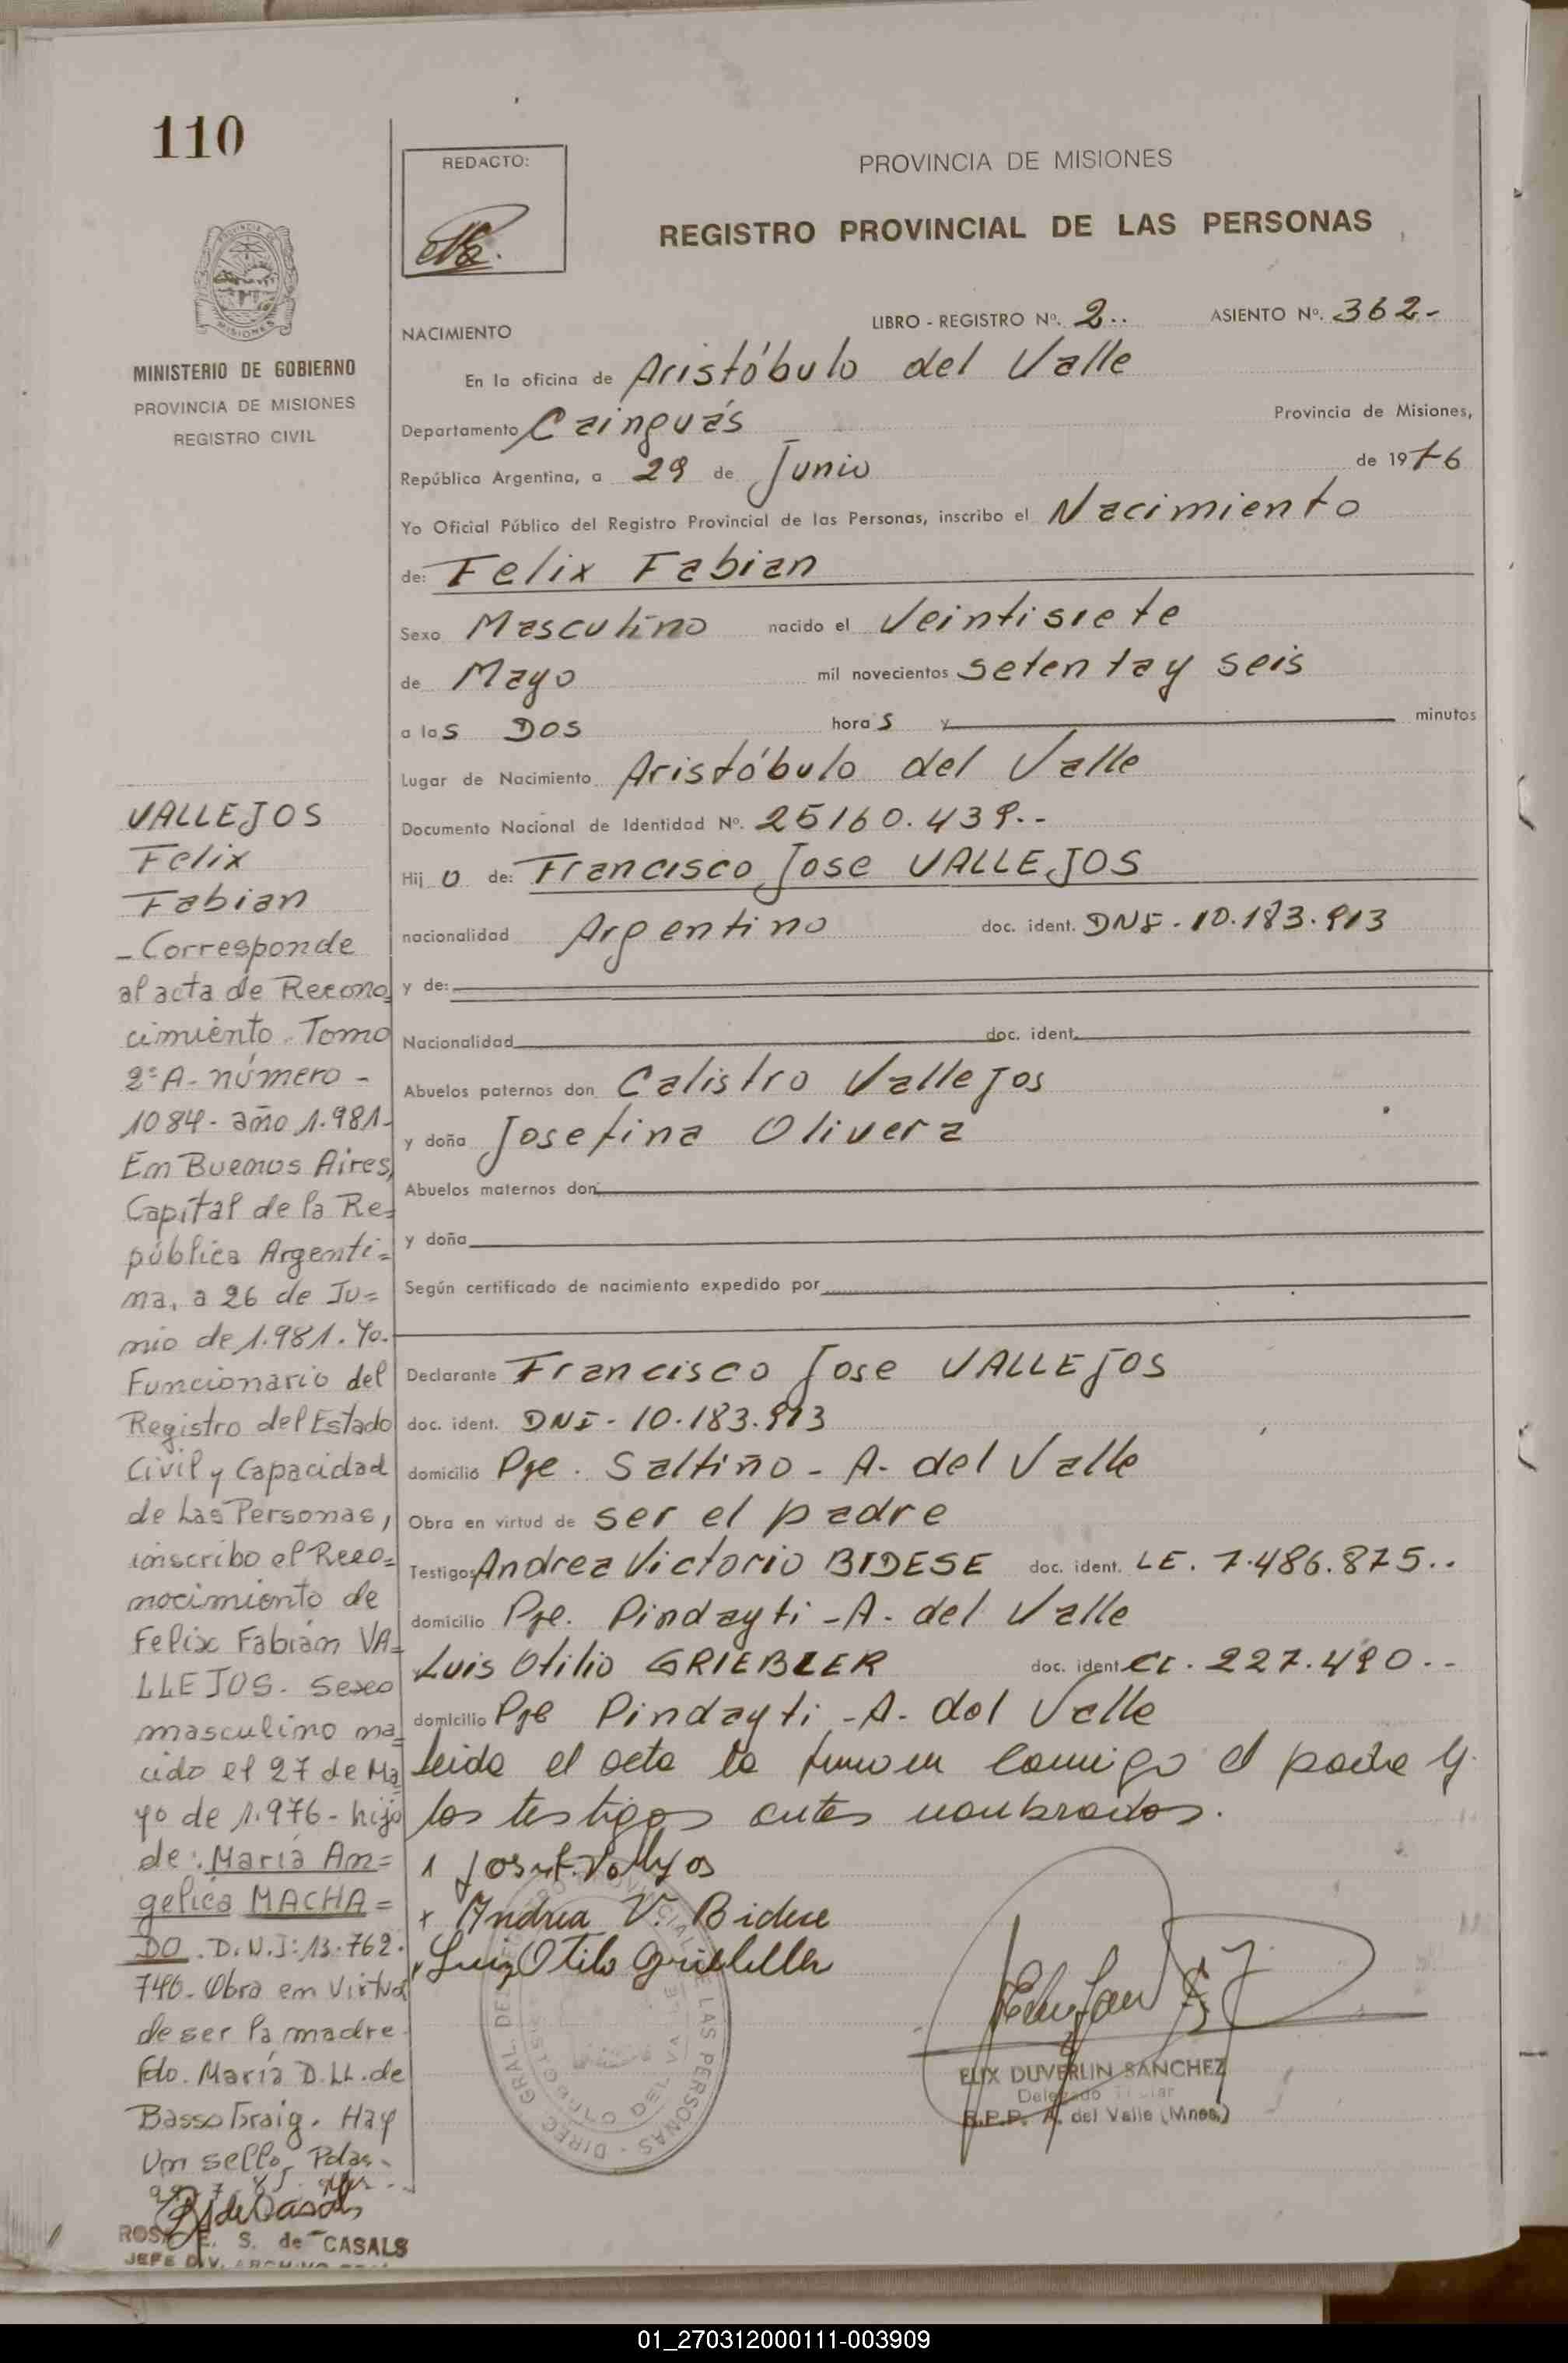 110
REDACTO:
PROVINCIA DE MISIONES
REGISTRO PROVINCIAL DE LAS PERSONAS
MISIONES
MINISTERIO DE GOBIERNO
PROVINCIA DE MISIONES
REGISTRO CIVIL
NACIMIENTO
LIBRO - REGISTRO Nº. 2.. ASIENTO Nº. 362-
En la oficina de Aristóbulo del Valle
Departamento Cainguás Provincia de Misiones,
República Argentina, a 29 de Junio de 1976
Yo Oficial Público del Registro Provincial de las Personas, inscribo el Nacimiento
de: Felix Fabian
Sexo Masculino nacido el Veintisiete
de Mayo mil novecientos setenta y seis
a las DOS horas y minutos
Lugar de Nacimiento Aristóbulo del Valle
Documento Nacional de Identidad Nº. 25160.439.-
Hijo de: Francisco Jose VALLEJOS
nacionalidad Argentino doc. ident. DNI - 10.183.913
y de:
Nacionalidad doc. ident.
Abuelos paternos don Calistro Vallejos
y doña Josefina Olivera
Abuelos maternos don
y doña
Según certificado de nacimiento expedido por
Declarante Francisco Jose VALLEJOS
doc. ident. DNI - 10.183.913
domicilio Pje. Saltiño - A. del Valle
Obra en virtud de ser el padre
Testigos Andrea Victorio BIDESE doc. ident. LE. 7.486.875..
domicilio Pje. Pindayti - A. del Valle
Luis Otilio GRIEBLER doc. ident. CI. 227.490.--
domicilio Pje Pindayti - A. del Valle
leida el acta la firman conmigo el padre y
los testigos antes nombrados.
Andrea V. Bidese
Luiz Otilo
ELIX DUVERLIN SANCHEZ
Delegado Titular
R.P.P. A. del Valle (Mnes.)
VALLEJOS
Felix
Fabian
- Corresponde
al acta de Recono=
cimiento. Tomo
2º A- número -
1084- año 1.981-
En Buenos Aires,
Capital de la Re=
pública Argenti=
na, a 26 de Ju=
nio de 1.981. Yo.
Funcionario del
Registro del Estado
Civil y Capacidad
de Las Personas,
inscribo el Reco=
nocimiento de
Felix Fabián VA=
LLEJOS. Sexo
masculino na=
cido el 27 de Ma
yo de 1.976 - hijo
de: María An=
gelica MACHA=
DO. D.N.I: 13.762.
740. Obra en Virtud
de ser la madre.
Fdo. María D. LL. de
Basso Hay
Un sello. Pdas.
ROSA E. S. de CASALS
JEFE DIV. ARCHIVO
01_270312000111-003909